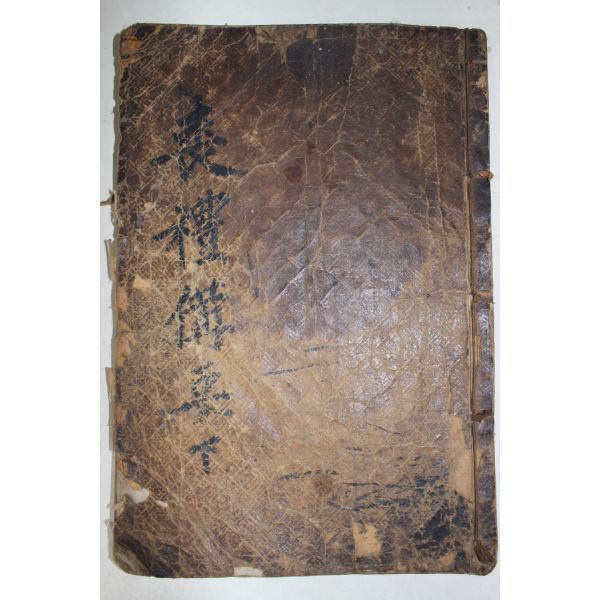 喪禮備要 下